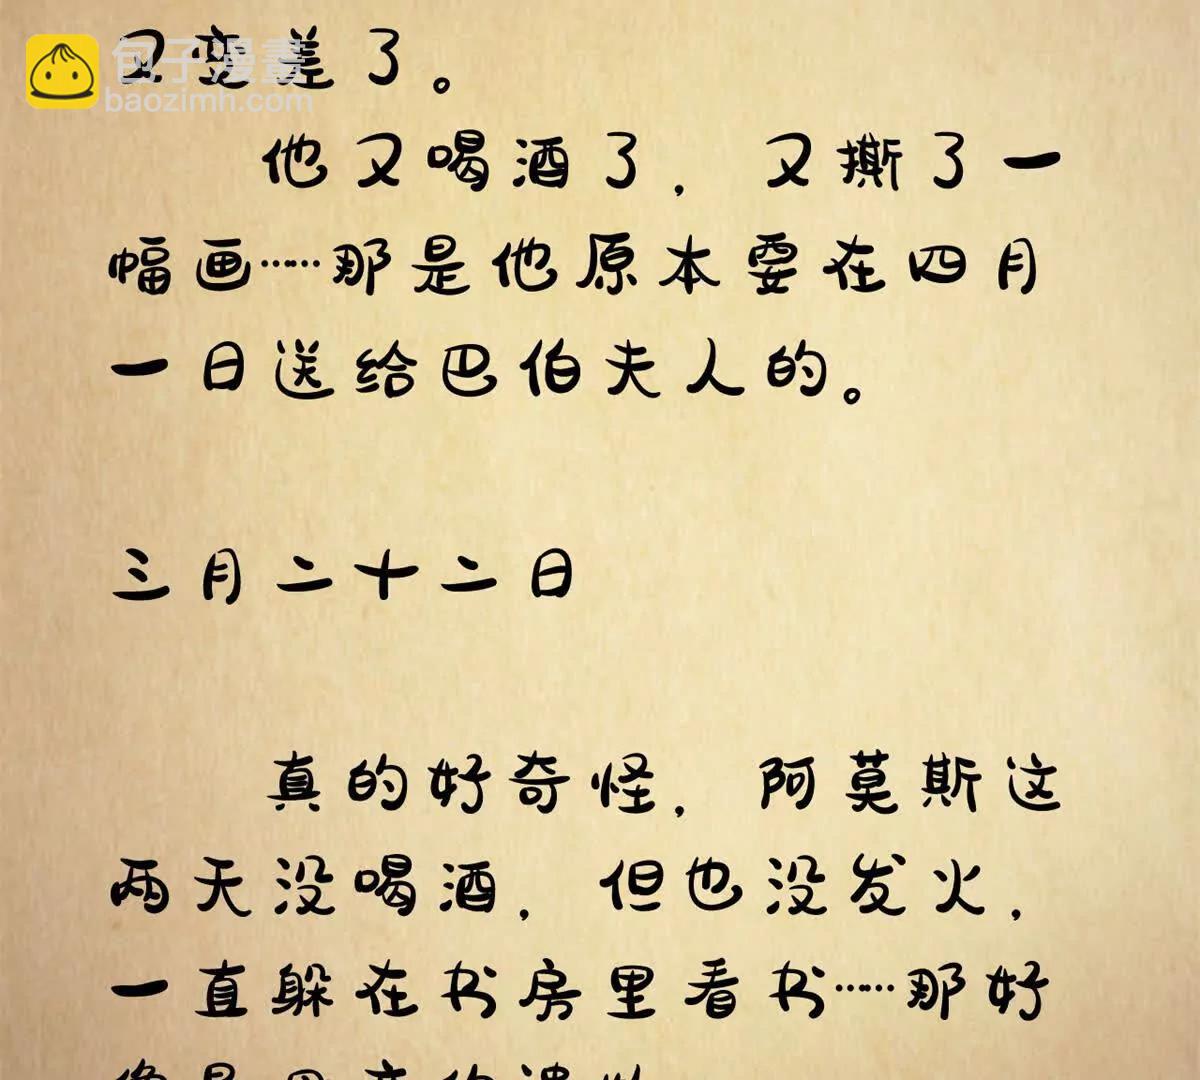 又变差了。
包子漫畫
baozimh.com
他又喝酒了，又撕了一
幅画……那是他原本要在四月
一日送给巴伯夫人的。
三月二十二日
真的好奇怪，阿莫斯这
两天没喝酒，但也没发火，
一直躲在书房里看书……那好